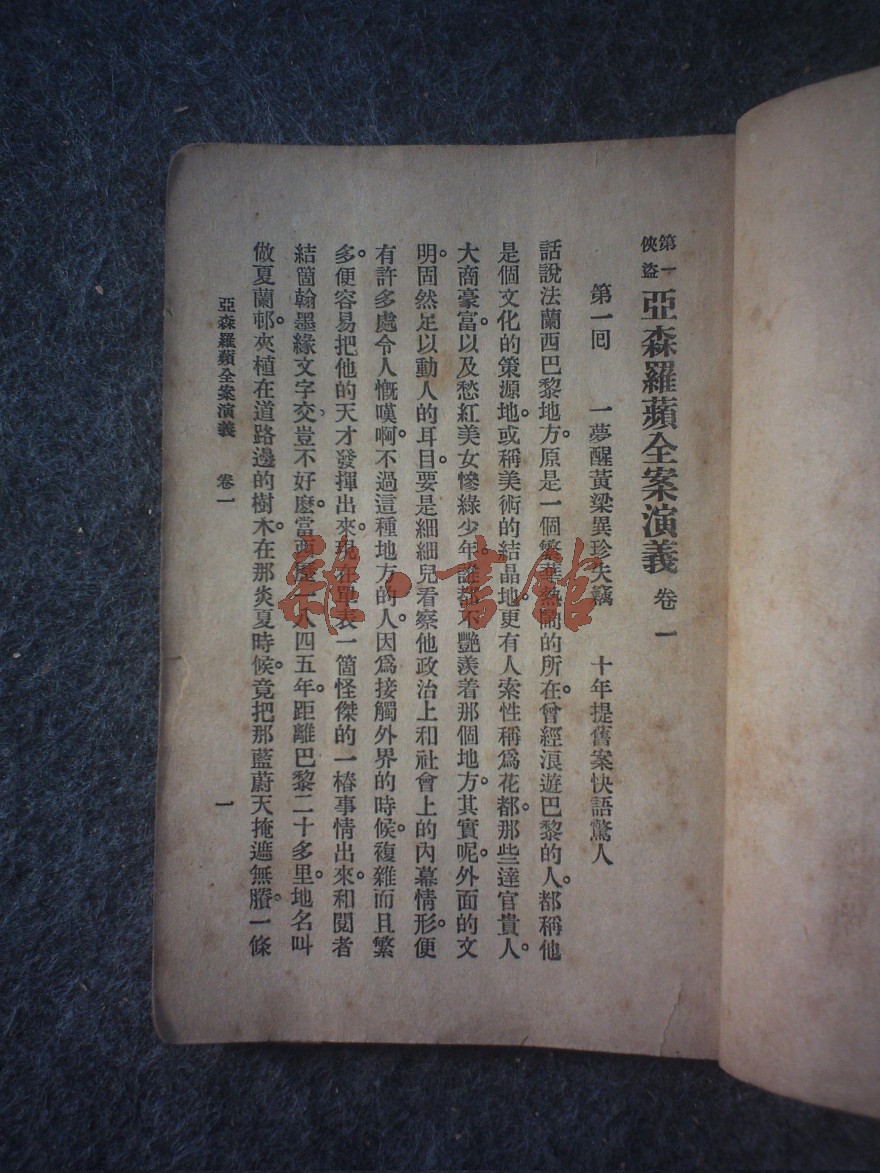 第一俠盜 亞森羅蘋全案演義 卷一
第一回 一夢醒黃粱異珍失竊 十年提舊案快語驚人
話說法蘭西巴黎地方。原是一個繁華熱鬧的所在。曾經浪遊巴黎的人。都稱他
是個文化的策源地。或稱美術的結晶地。更有人索性稱爲花都。那些達官貴人。
大商豪富。以及愁紅美女慘綠少年。誰都不艷羨着那個地方。其實呢。外面的文
明。固然足以動人的耳目。要是細細兒看察他政治上和社會上的內幕情形。便
有許多處令人慨嘆啊。不過這種地方的人。因爲接觸外界的時候。複雜而且繁
多。便容易把他的天才發揮出來。現在單表一箇怪傑的一樁事情出來。和閱者
結箇翰墨緣文字交。豈不好麼。當西歷一八四五年。距離巴黎二十多里。地名叫
做夏蘭邨。夾植在道路邊的樹木。在那炎夏時候。竟把那藍蔚天掩遮無賸。一條
亞森羅蘋全案演義 卷一 一
雜·書館